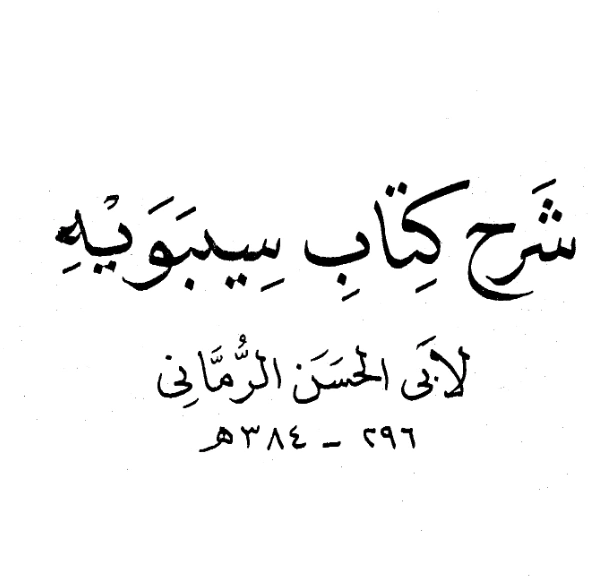 شَرح كِتَابِ سِيبَوَيْهِ
لابَى الحسَن الرُّمَّانِى
٢٩٦ – ٣٨٤هـ